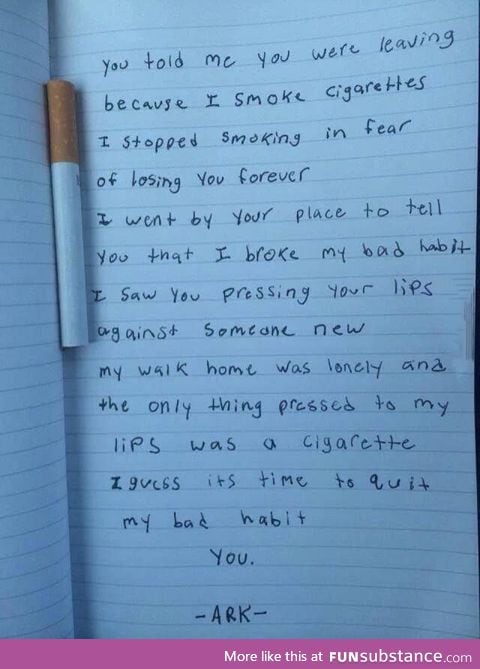 You told me you were leaving
because I smoke cigarettes
I stopped smoking in fear
of losing you forever
I went by your place to tell
you that I broke my bad habit
I saw you pressing your lips
against someone new
my walk home was lonely and
the only thing pressed to my
lips was a cigarette
I guess its time to quit
my bad habit
You.
-ARK-
More like this at FUNsubstance.com